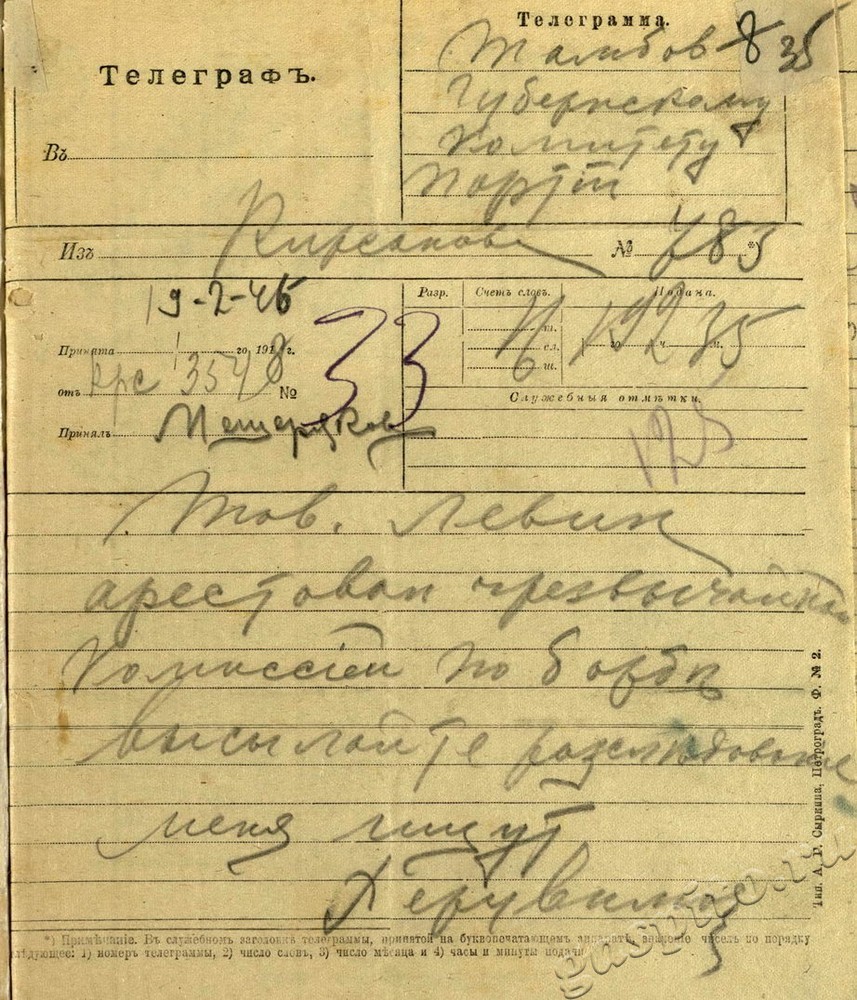 Телеграмма.
8 35
Тамбов
Губернскому
Комитету
Парти
Телеграфъ.
Въ
Изъ Кирсанова № 783 *)
19-2-45
Принята го 1918 г.
отъ крс 3548 №
33
Принялъ Мещеряков
Разр.
Счетъ словъ.
Подана.
сл.
ш.
го ч. м.
19 2 35
Служебныя отмѣтки.
125
Тов. Левин
арестован чрезвычайной
Комиссіей по борбѣ
высылайте разслѣдование
меня ищут
Херувимов
*) Примѣчаніе. Въ служебномъ заголовкѣ телеграммы, принятой на буквопечатающемъ аппаратѣ, значеніе чиселъ по порядку
слѣдующее: 1) номеръ телеграммы, 2) число словъ, 3) число мѣсяца и 4) часы и минуты подачи
Тип. А. Г. Сыркина, Петроградъ. Ф. № 2.